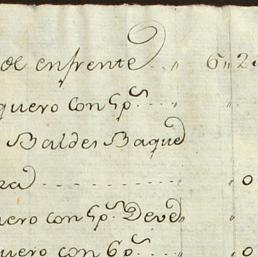 ol enfrente . . " 6 " 2
quero con hp.s . . . "
Baldes Baque
za . . . . . . . . . . " 0
uero con hp.s Deve "
quero con 6 p.s . . " 0